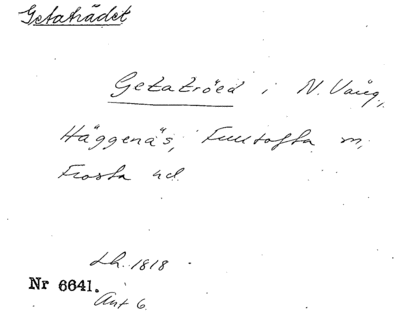 Getaträdet
Getatröed i N. Vång,
Häggenäs, Fultofta m,
Frosta hd.
Lh. 1818
Nr 6641.
Ant 6.